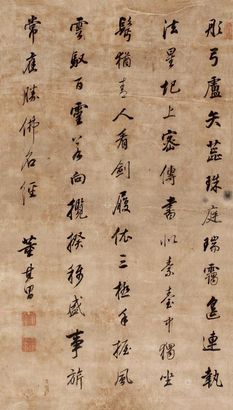 彤弓盧矢蕊珠庭瑞靄遙連執
法星圯上密傳書似素臺中獨坐
鬢猶青人看劍履依三極手握風
雲馭百靈若向攬揆称盛事旃
常應勝佛名經 董其昌